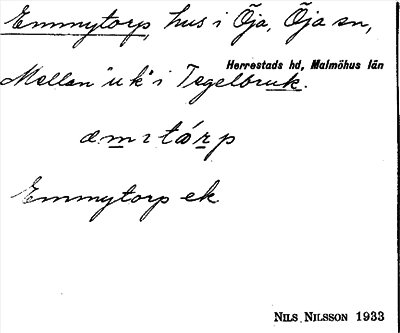 Emmytorp, hus i Öja, Öja sn,
Herrestads hd, Malmöhus län
Mellan "uk" i Tegelbruk.
æmıtárp
Emmytorp ek
NILS NILSSON 1933